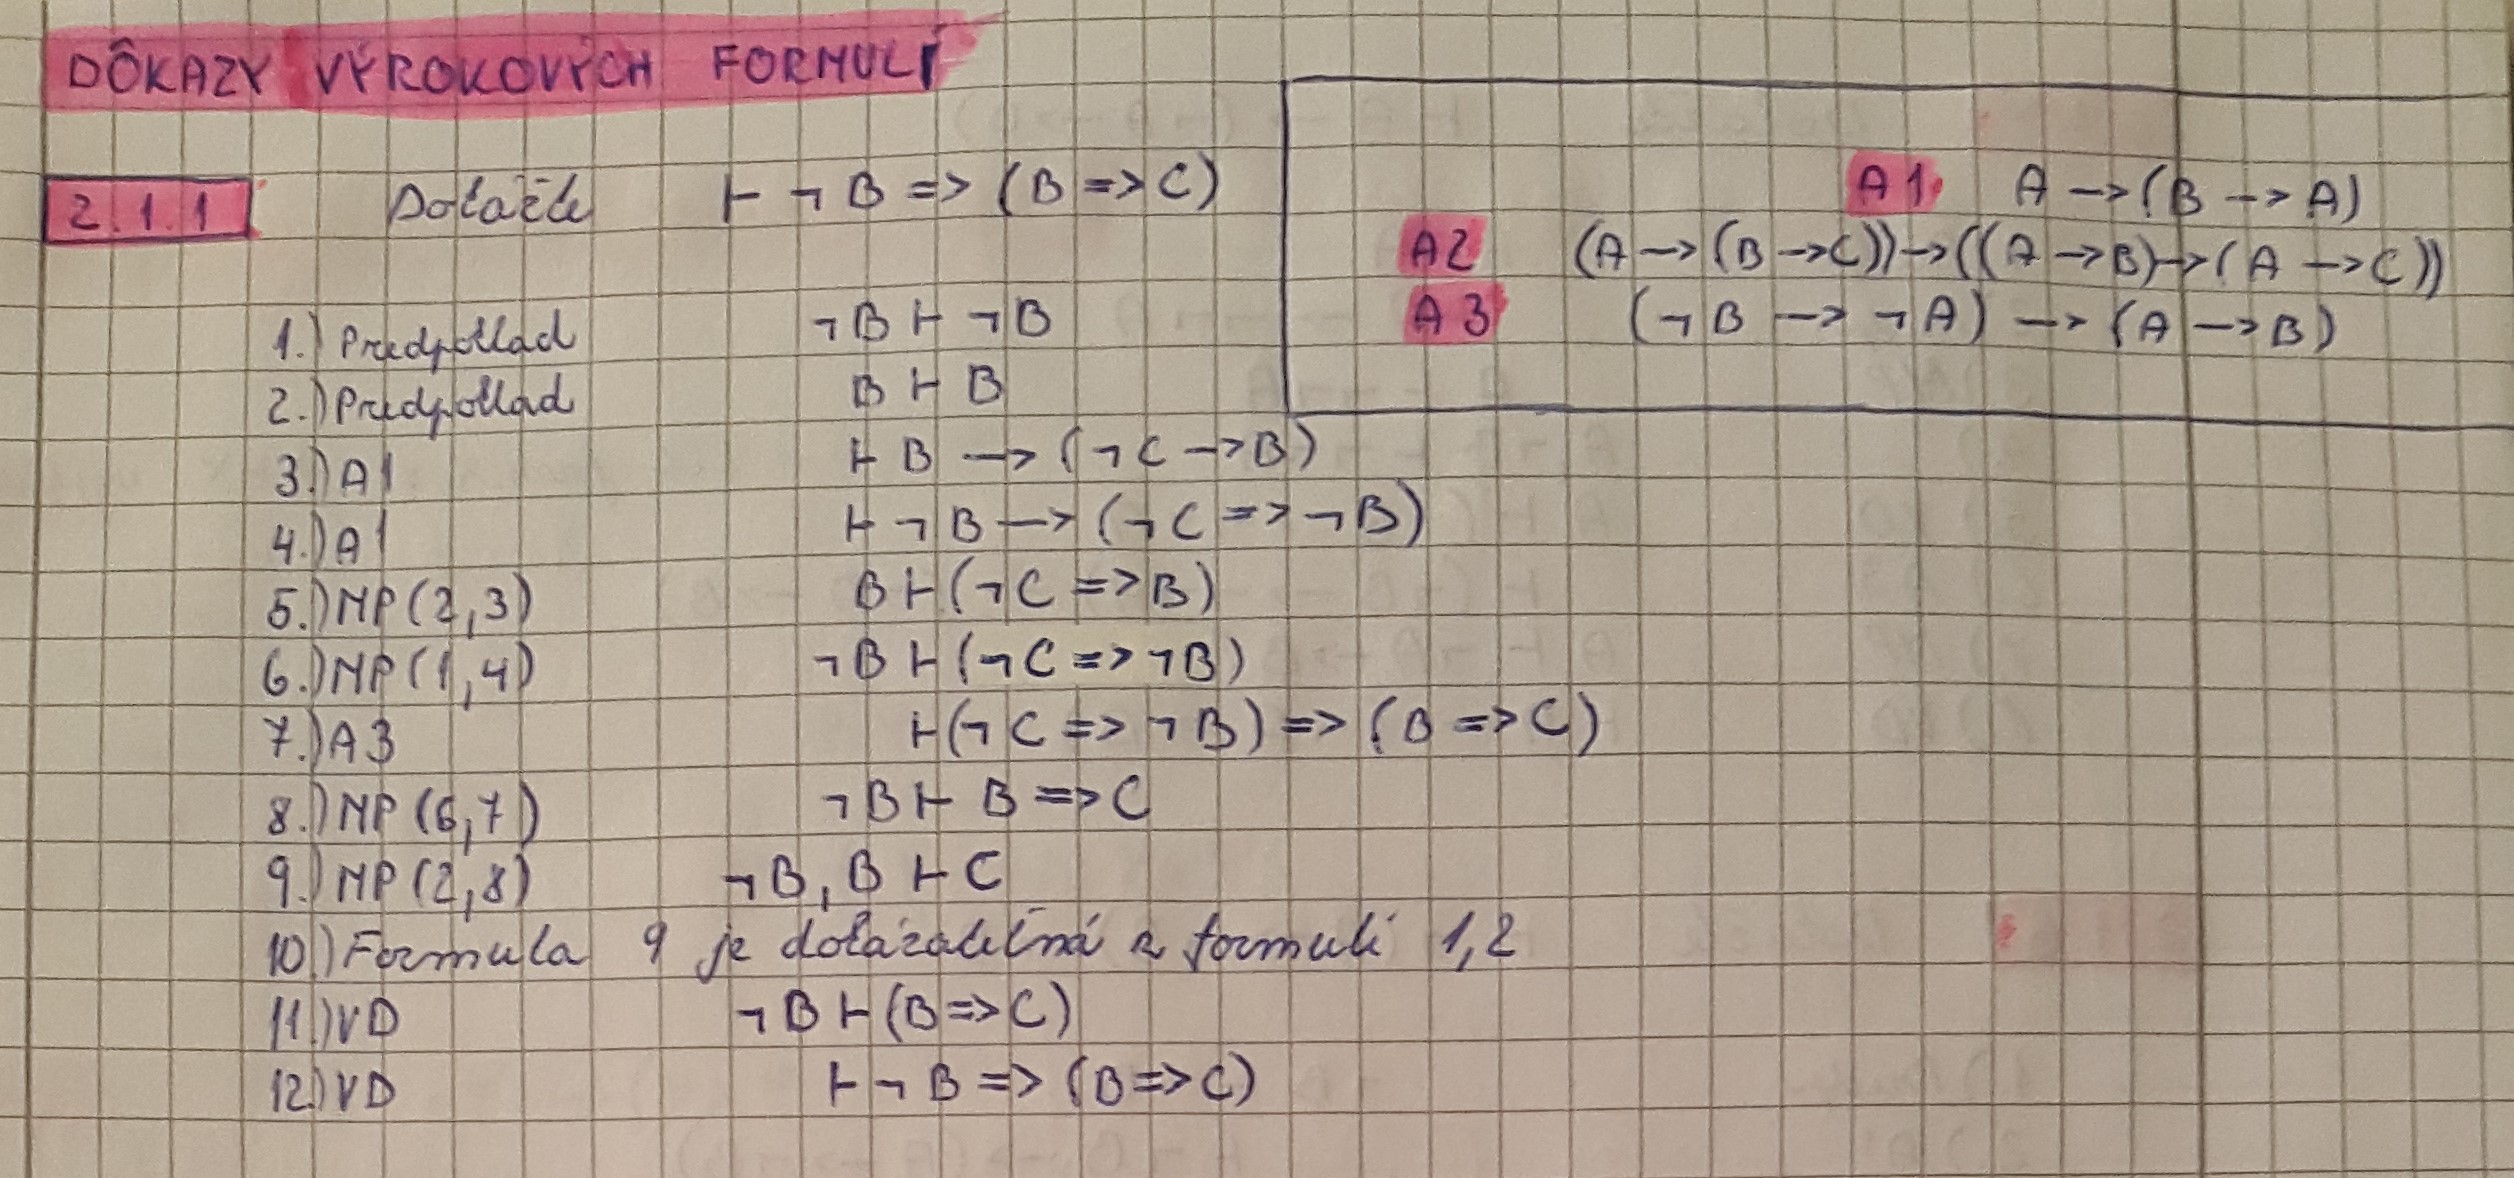 DÔKAZY VÝROKOVÝCH FORMULÍ
A1 A → (B → A)
2.1.1 Dokážte ⊢ ¬B => (B => C)
A2 (A → (B → C)) → ((A → B) → (A → C))
A3 (¬B → ¬A) → (A → B)
1.) Predpoklad ¬B ⊢ ¬B
2.) Predpoklad B ⊢ B
3.) A1 ⊢ B → (¬C → B)
4.) A1 ⊢ ¬B → (¬C => ¬B)
5.) MP (2,3) B ⊢ (¬C => B)
6.) MP (1,4) ¬B ⊢ (¬C => ¬B)
7.) A3 ⊢ (¬C => ¬B) => (B => C)
8.) MP (6,7) ¬B ⊢ B => C
9.) MP (2,8) ¬B, B ⊢ C
10.) Formula 9 je dokázateľná z formulí 1,2
11.) VD ¬B ⊢ (B => C)
12.) VD ⊢ ¬B => (B => C)